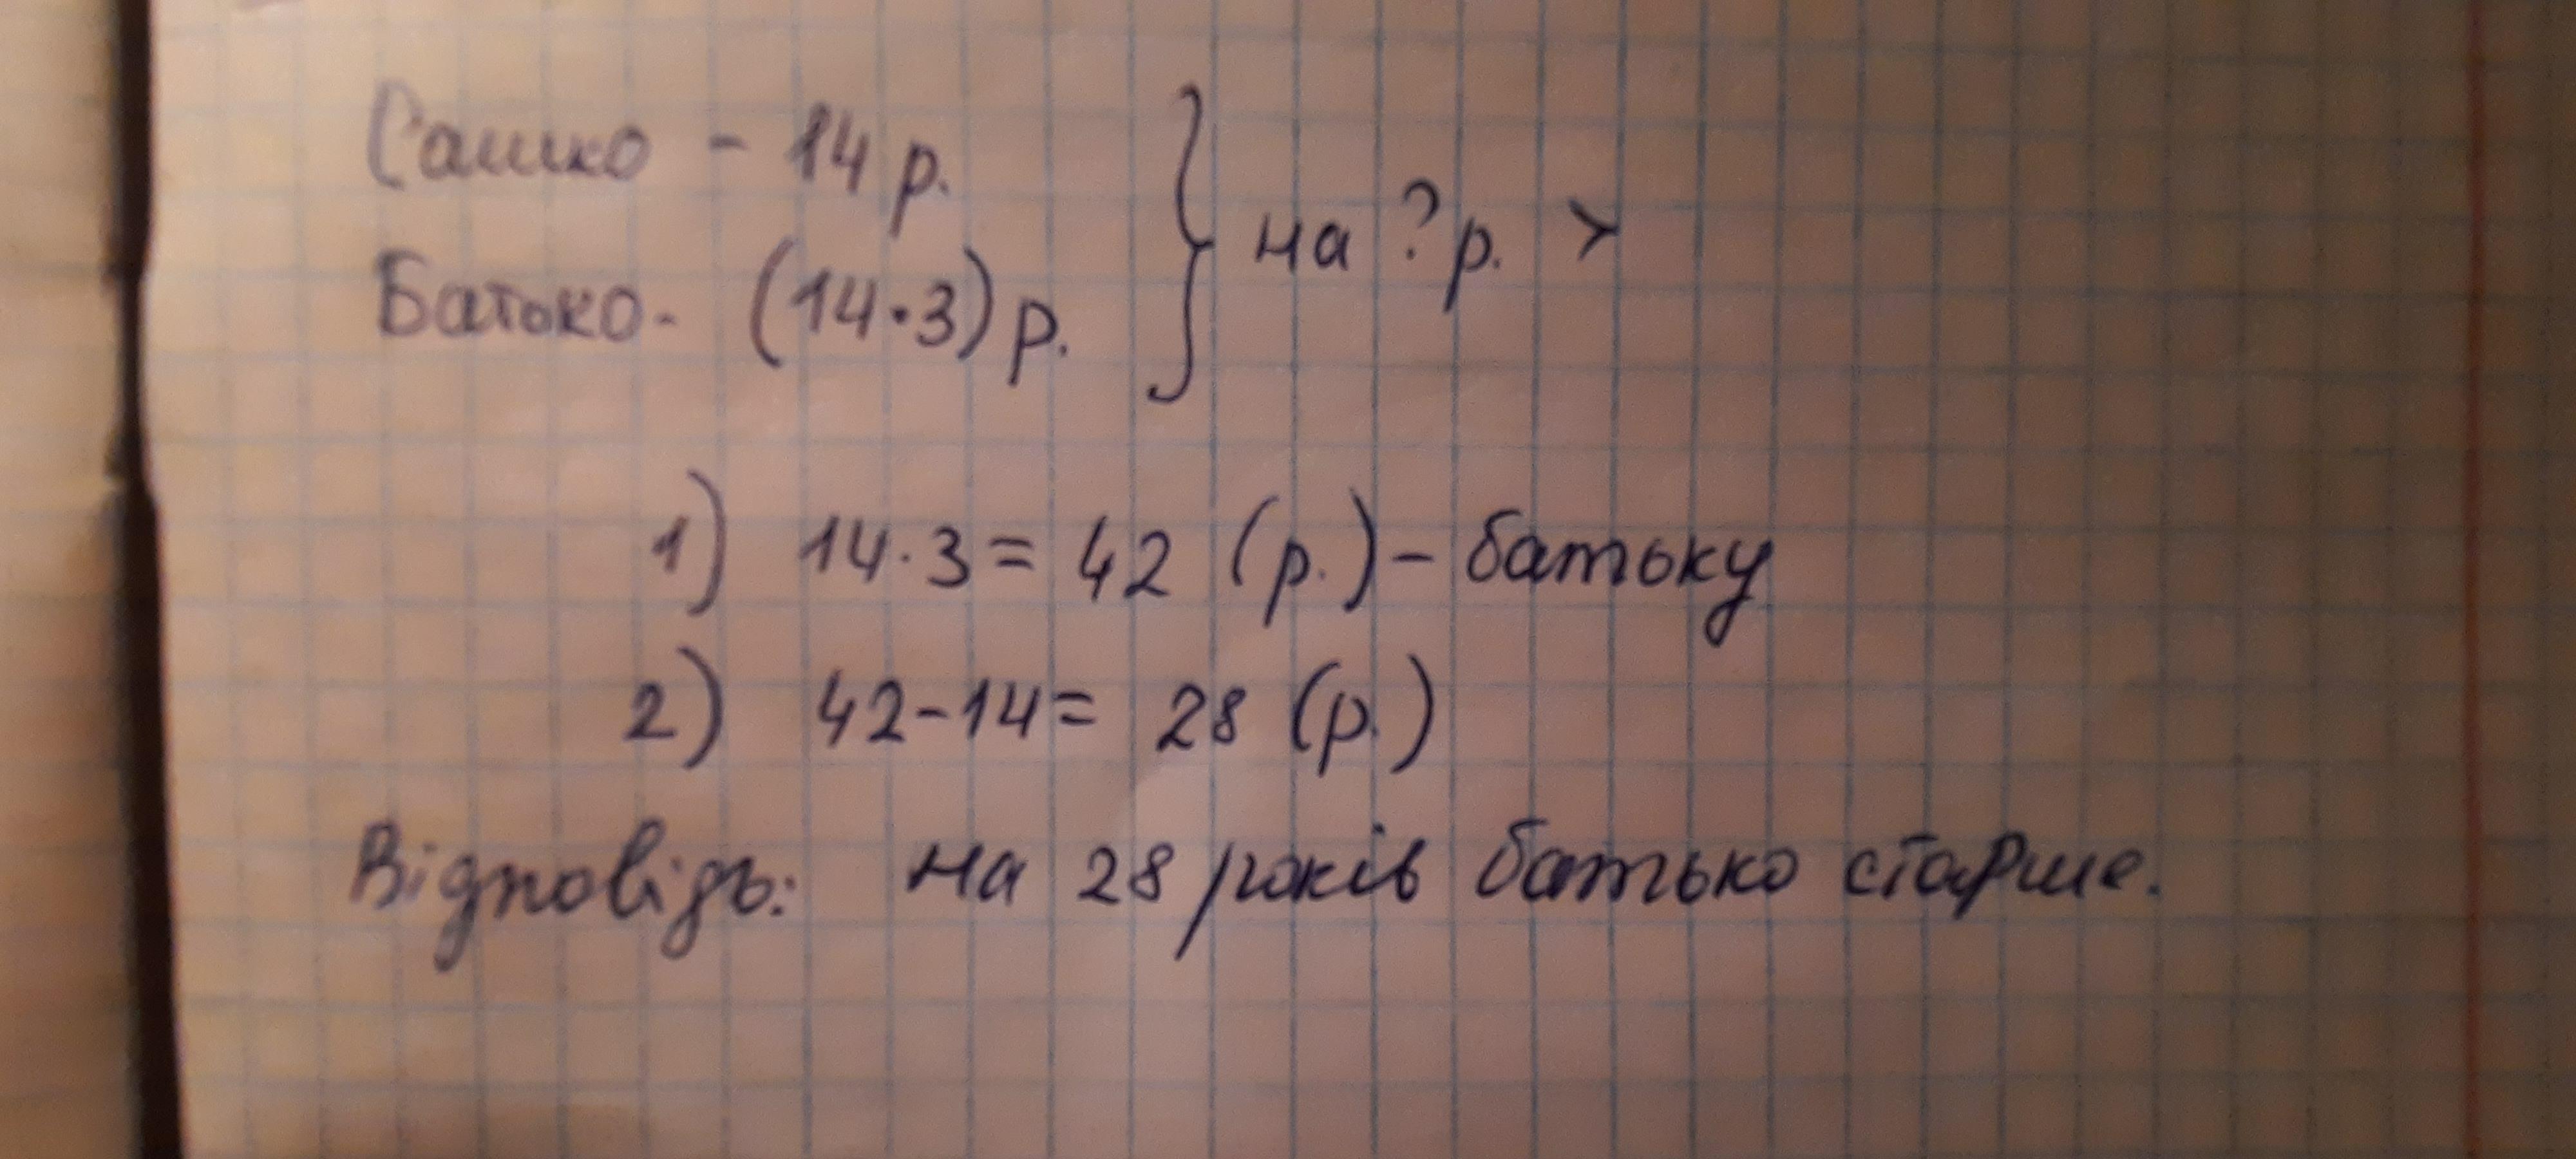 Сашко - 14 р.
Батько - (14·3) р. } на ? р. >
1) 14·3 = 42 (р.) - батьку
2) 42-14 = 28 (р.)
Відповідь: на 28 років батько старше.